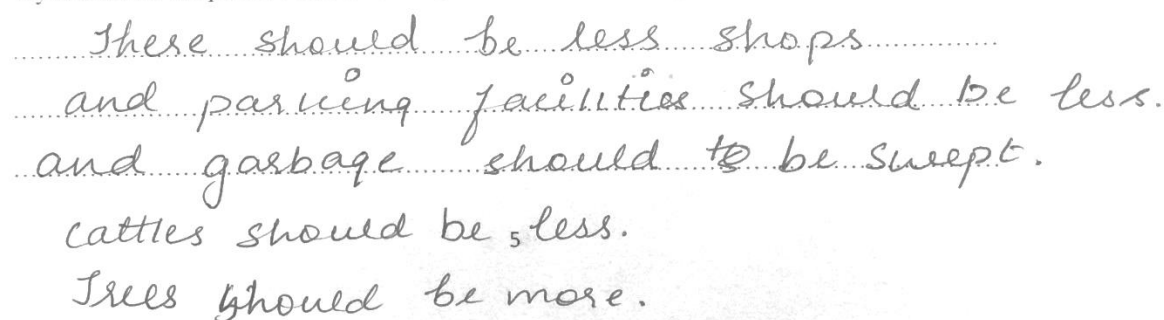 There should be less shops
and parking facilities should be less.
and garbage should to be swept.
cattles should be 5 less.
Trees should be more.